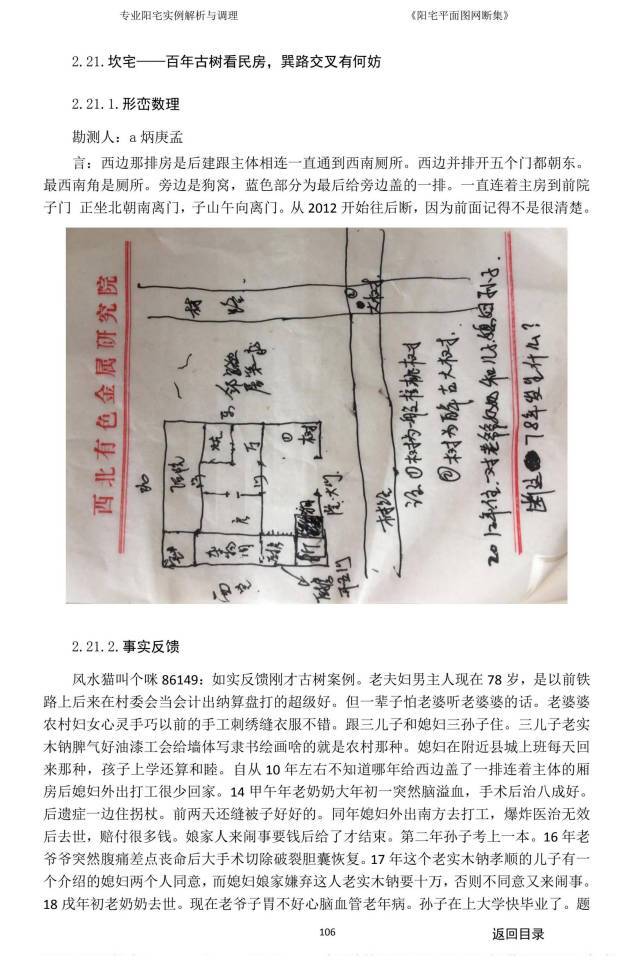 专业阳宅实例解析与调理 《阳宅平面图网断集》
2.21.坎宅——百年古树看民房，巽路交叉有何妨
2.21.1.形峦数理
勘测人：a 炳庚孟
言：西边那排房是后建跟主体相连一直通到西南厕所。西边并排开五个门都朝东。
最西南角是厕所。旁边是狗窝，蓝色部分为最后给旁边盖的一排。一直连着主房到前院
子门 正坐北朝南离门，子山午向离门。从 2012 开始往后断，因为前面记得不是很清楚。
西北有色金属研究院
村路
北
邻
大树
后院
厅
门
①
树
院大门
杂物间
厕
村路
注①树为一般核桃树
②树为百年古大树
2012年住一对老爷奶奶和儿子媳妇孙子.
78年发生什么?
2.21.2.事实反馈
风水猫叫个咪 86149：如实反馈刚才古树案例。老夫妇男主人现在 78 岁，是以前铁
路上后来在村委会当会计出纳算盘打的超级好。但一辈子怕老婆听老婆婆的话。老婆婆
农村妇女心灵手巧以前的手工刺绣缝衣服不错。跟三儿子和媳妇三孙子住。三儿子老实
木钠脾气好油漆工会给墙体写隶书绘画啥的就是农村那种。媳妇在附近县城上班每天回
来那种，孩子上学还算和睦。自从 10 年左右不知道哪年给西边盖了一排连着主体的厢
房后媳妇外出打工很少回家。14 甲午年老奶奶大年初一突然脑溢血，手术后治八成好。
后遗症一边住拐杖。前两天还缝被子好好的。同年媳妇外出南方去打工，爆炸医治无效
后去世，赔付很多钱。娘家人来闹事要钱后给了才结束。第二年孙子考上一本。16 年老
爷爷突然腹痛差点丧命后大手术切除破裂胆囊恢复。17 年这个老实木钠孝顺的儿子有一
个介绍的媳妇两个人同意，而媳妇娘家嫌弃这人老实木钠要十万，否则不同意又来闹事。
18 戌年初老奶奶去世。现在老爷子胃不好心脑血管老年病。孙子在上大学快毕业了。题
106 返回目录